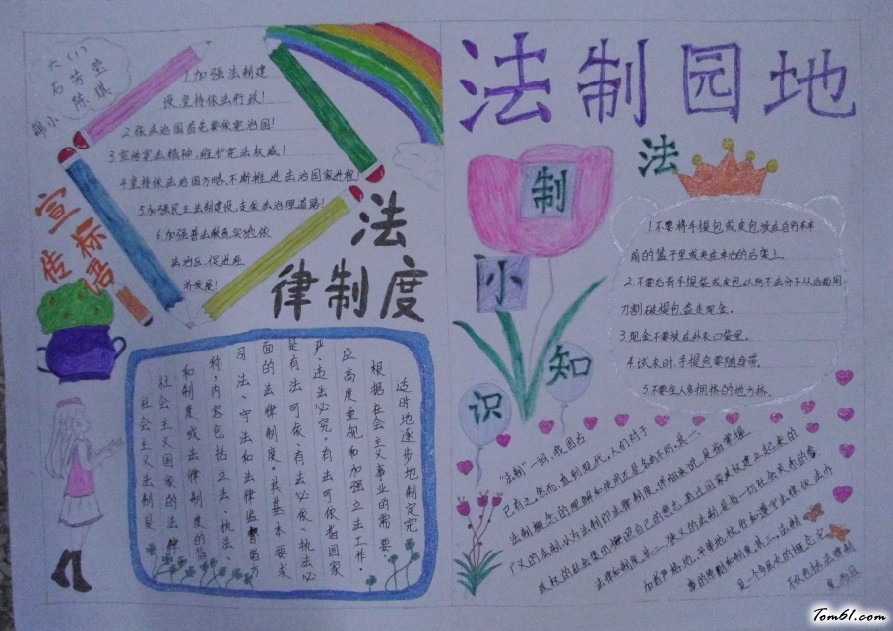 法制园地
六(1)
石芳莹
陈琪
宣传标语
1.加强法制建
设,坚持依法行政!
2.依法治国首先要依宪治国!
3.宣传宪法精神,维护宪法权威!
4.坚持依法治国方略,不断推进法治国家进程!
5.加强民主法制建设,走依法治理道路!
6.加强普法教育实地依
法治区,促进经
济发展!
法
律制度
适时地逐步地制定完
根据社会主义事业的需要,
应高度重视和加强立法工作,
严、违法必究。有法可依指国家
是有法可依、有法必依、执法必
面的法律制度。其基本要求
司法、守法和法律监督各方
称,内容包括立法、执法、
和制度或法律制度的简
社会主义国家的法律
社会主义法制是
法制小知识
1.不要将手提包或皮包放在自行车车
前的篮子里或夹在车边的后架上
2.不要
刀割破提包盗走现金。
3.现金不要放在外衣口袋里。
4.试衣时,手提包要随身带。
5.不要
"法制"一词,我国古
已有之,然而,直到现代,人们对于
法制概念的理解和使用还是各有不同。其一,
广义的法制,认为法制即法律制度。详细来说,是指掌握
政权的社会
法律和制度。其二,狭义的法制,是指一切社会关系的参
加者严格地、平等地执行和遵守法律,依法办
事的原则和制度。其三,法制
是一个多层次的概念,它
不仅包括法律制
Tom61.com